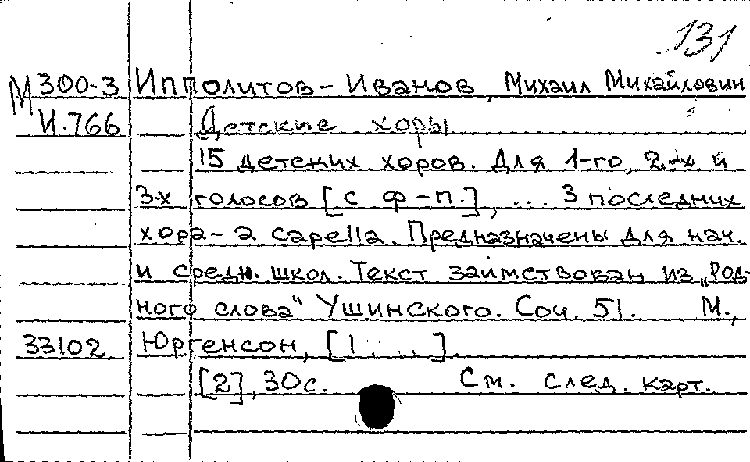 131
М 300-3 Ипполитов-Иванов, Михаил Михайлович
И.766 Детские хоры
15 детских хоров. Для 1-го, 2-х и
3-х голосов [с ф-п.], ... 3 последних
хора - а capella. Предназначены для нач.
и средн. школ. Текст заимствован из „Род-
ного слова" Ушинского. Соч. 51. М.,
33102 Юргенсон, [1 ....].
[2], 30с. См. след. карт.